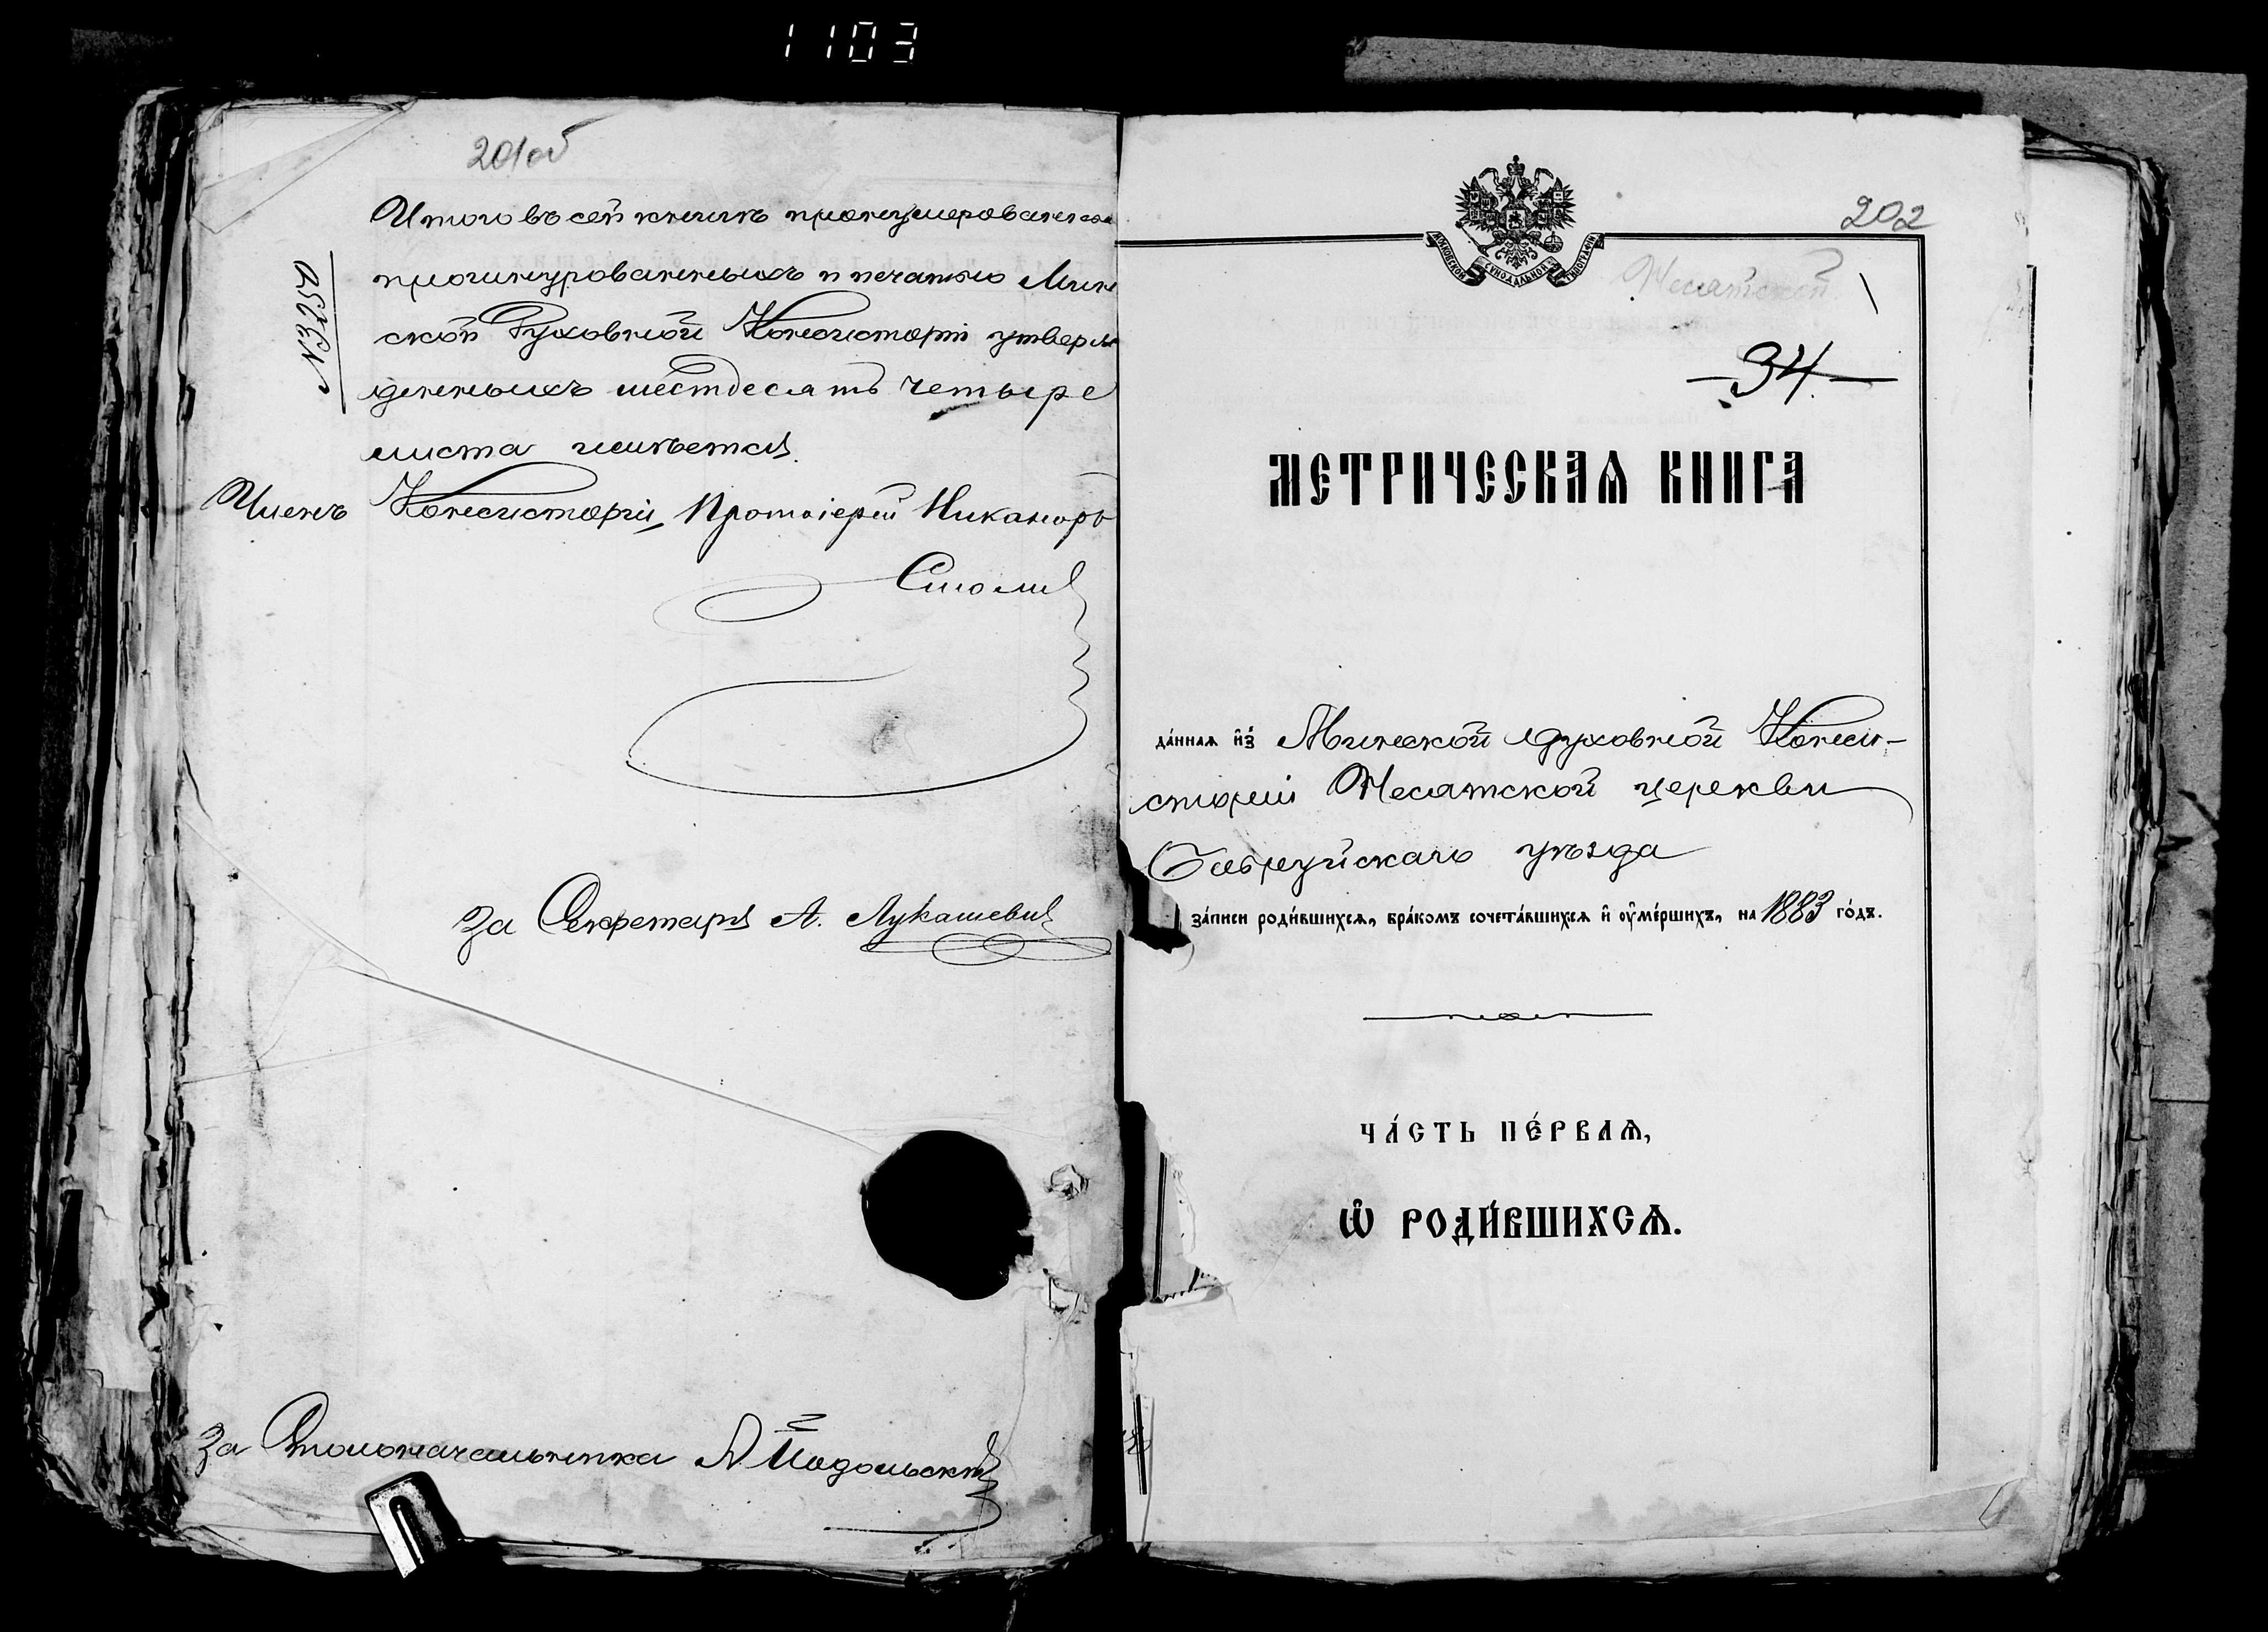 1103
201об
Итого въ сей книгѣ пронумерованныхъ
прошнурованныхъ и печатью Мин
ской Духовной Консисторіи утверж
денныхъ шестдесять четыре
листа имѣется.
№ 3250
Членъ Консисторіи, Протоіерей Никаноръ
За Секретаря А. Лукашевич
За Столоначальника А Подольскій
202
МОСКОВСКОЙ СУНОДАЛЬНОЙ ТИПОГРАФІИ
Несятской
34.
МЕТРИЧЕСКАѦ КНИГА
да́ннаѧ и҆з̾ Минской духовной Конси-
сторіи Несятской церкви
Бобруйскаго уѣзда
за́писи роди́вшихсѧ, бра́комъ сочета́вшихсѧ и҆ ѹ҆ме́ршихъ, на 1883 го́дъ.
ЧА́СТЬ ПЕ́РВАѦ,
Ѽ РОДИ́ВШИХСѦ.